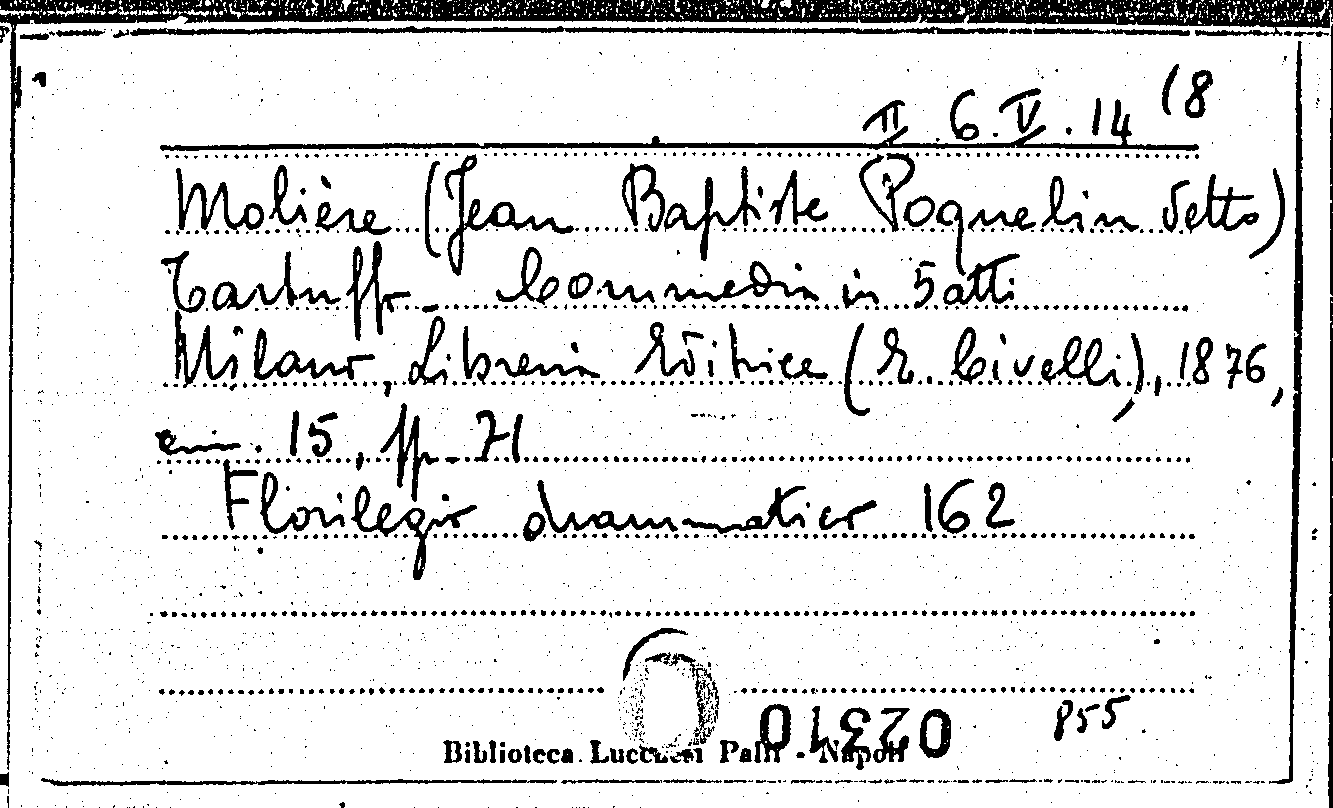 II . 6 . V . 14 (8
Molière (Jean Baptiste Poquelin detto)
Tartuffo - Commedia in 5 atti
Milano, Libreria Editrice (E. Civelli), 1876,
cm. 15, pp. 71
Florilegio drammatico 162
02310
P55
Biblioteca Lucchesi Palli - Napoli